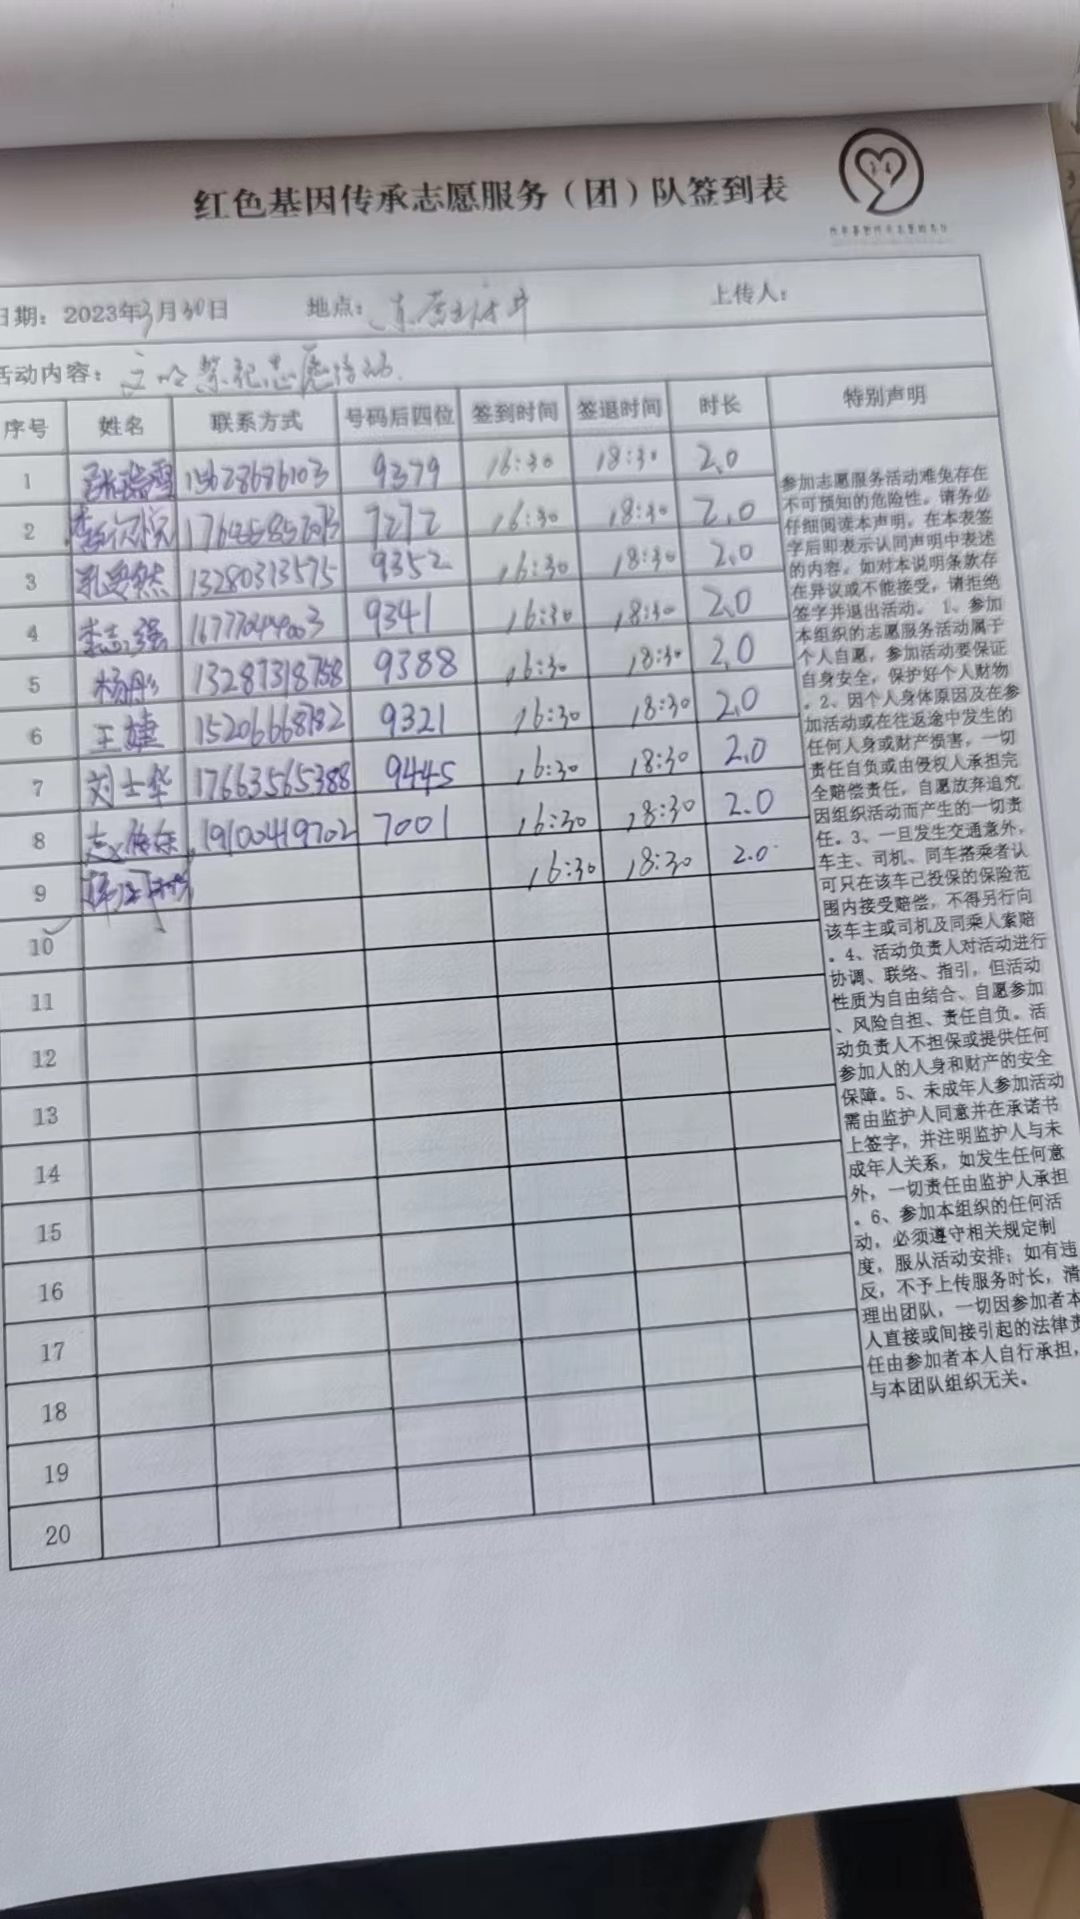 红色基因传承志愿服务（团）队签到表
日期：2023年3月30日 地点： 上传人：
活动内容：
序号 姓名 联系方式 号码后四位 签到时间 签退时间 时长 特别声明
1 15628686103 9379 16:30 18:30 2.0
2 7272 16:30 18:30 2.0
3 13280313575 9352 16:30 18:30 2.0
4 李志强 9341 16:30 18:30 2.0
5 杨彤 13287318758 9388 16:30 18:30 2.0
6 王婕 9321 16:30 18:30 2.0
7 刘士华 17663565388 9445 16:30 18:30 2.0
8 19100419702 7001 16:30 18:30 2.0
9 16:30 18:30 2.0
10
11
12
13
14
15
16
17
18
19
20
参加志愿服务活动难免存在
不可预知的危险性，请务必
仔细阅读本声明，在本表签
字后即表示认同声明中表述
的内容。如对本说明条款存
在异议或不能接受，请拒绝
签字并退出活动。 1、参加
本组织的志愿服务活动属于
个人自愿，参加活动要保证
自身安全，保护好个人财物
。2、因个人身体原因及在参
加活动或在往返途中发生的
任何人身或财产损害，一切
责任自负或由侵权人承担完
全赔偿责任，自愿放弃追究
因组织活动而产生的一切责
任。3、一旦发生交通意外，
车主、司机、同车搭乘者认
可只在该车已投保的保险范
围内接受赔偿，不得另行向
该车主或司机及同乘人索赔
。4、活动负责人对活动进行
协调、联络、指引，但活动
性质为自由结合、自愿参加
、风险自担、责任自负。活
动负责人不担保或提供任何
参加人的人身和财产的安全
保障。5、未成年人参加活动
需由监护人同意并在承诺书
上签字，并注明监护人与未
成年人关系，如发生任何意
外，一切责任由监护人承担
。6、参加本组织的任何活
动，必须遵守相关规定制
度，服从活动安排；如有违
反，不予上传服务时长，清
理出团队，一切因参加者本
人直接或间接引起的法律责
任由参加者本人自行承担，
与本团队组织无关。